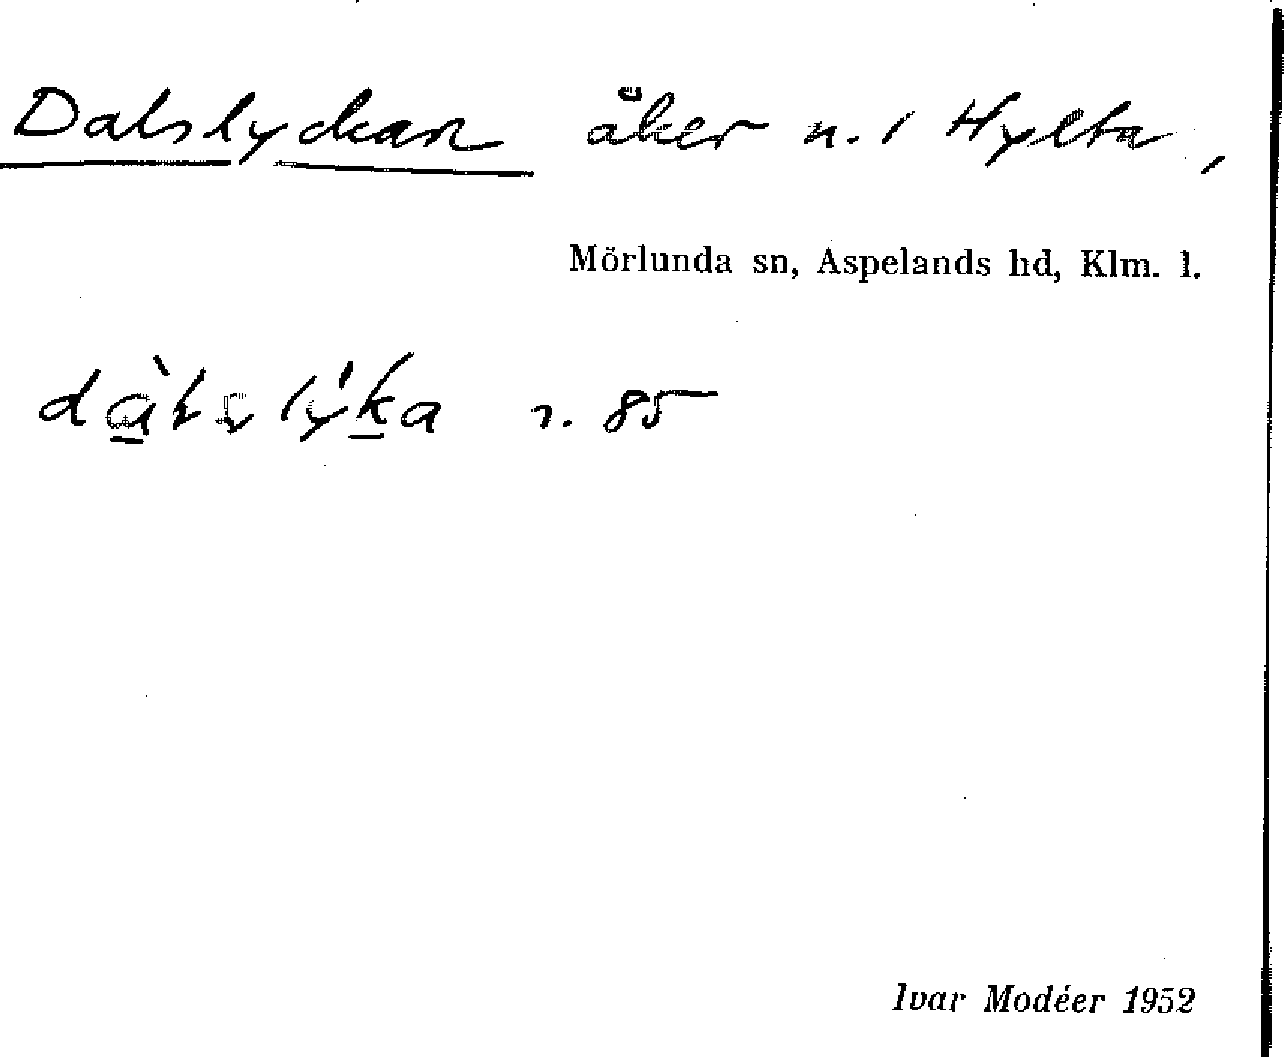 Dalslyckan åker n. i Hylta,
Mörlunda sn, Aspelands hd, Klm. l.
r. 85
Ivar Modéer 1952